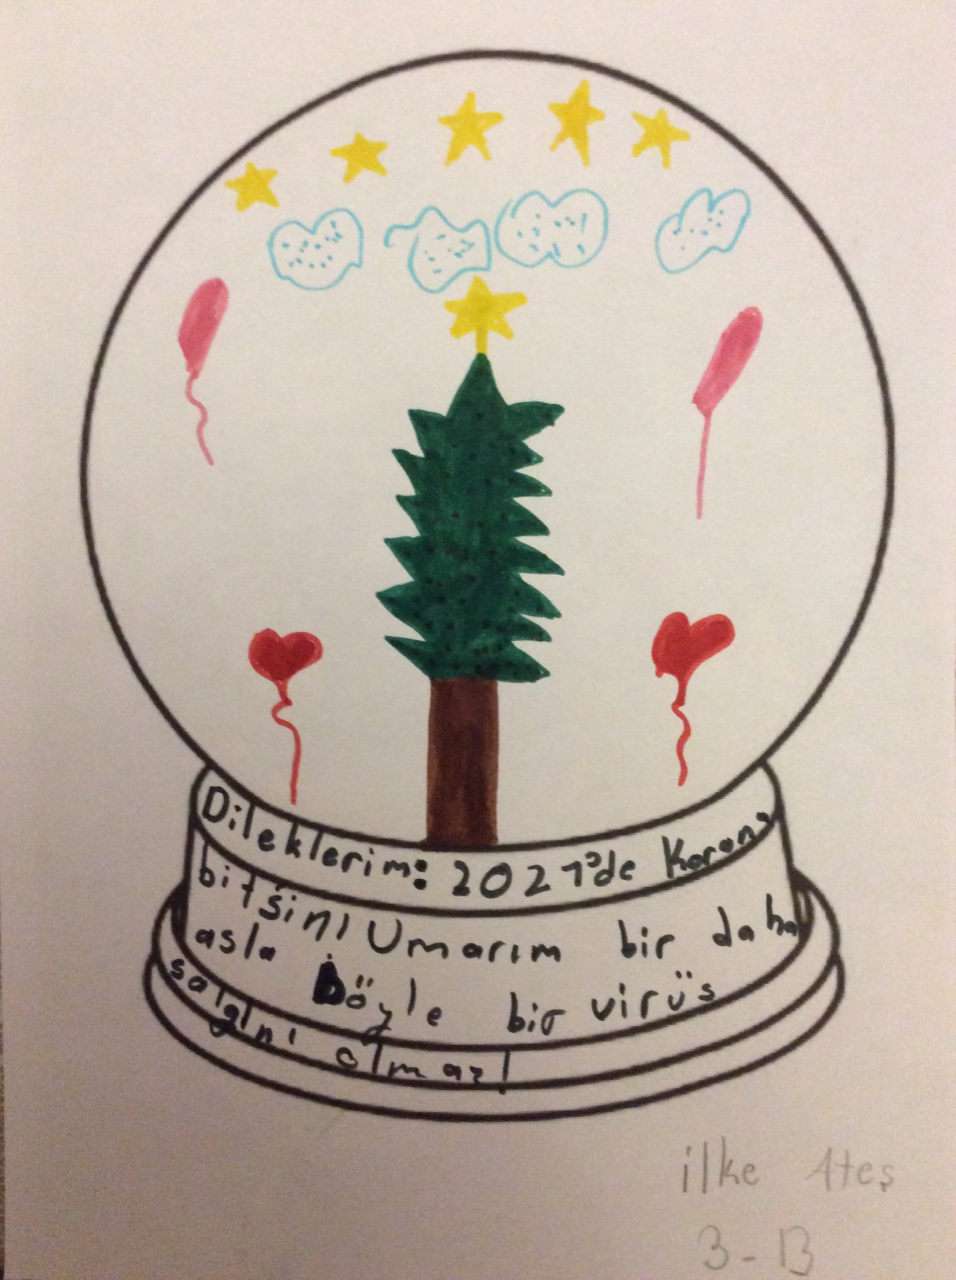 Dileklerim: 2021'de Korona
bitsin! Umarım bir daha
asla böyle bir virüs
salgını olmaz!
ilke Ateş
3-B